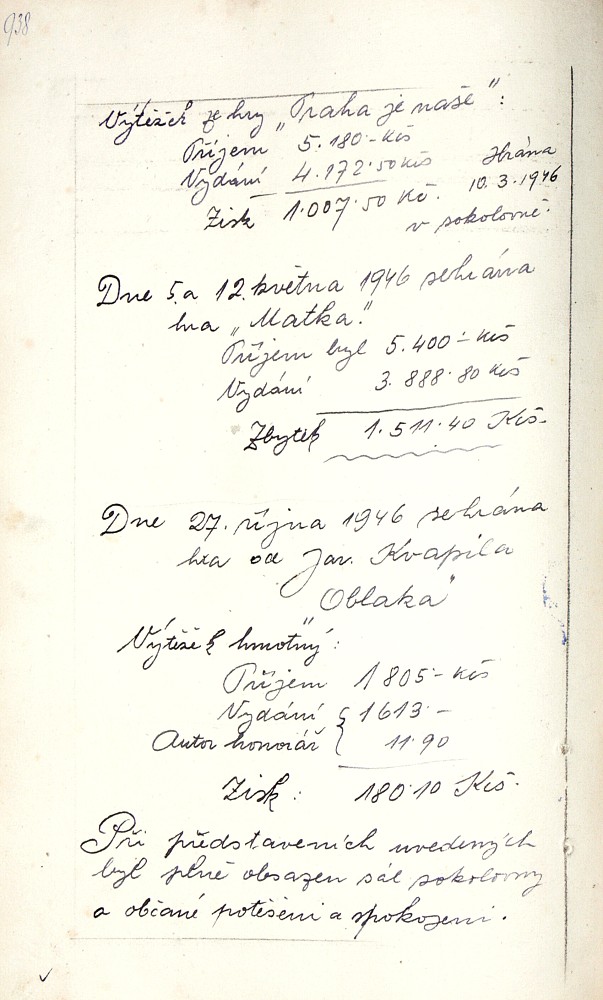 938
Výtěžek ze hry „Praha je naše":
Příjem 5.180·- Kčs
Vydání 4.172·50 Kčs
Zisk 1.007·50 Kč.
Hrána
10.3.1946
v sokolovně.
Dne 5. a 12. května 1946 sehrána
hra „Matka."
Příjem byl 5.400·- Kčs
Vydání 3.888·80 Kčs
Zbytek 1.511·40 Kčs.
Dne 27. října 1946 sehrána
hra od Jar. Kvapila
„Oblaka"
Výtěžek hmotný:
Příjem 1805·- Kčs
Vydání 1613·-
Autor honorář 11·90
Zisk: 180·10 Kčs.
Při představeních uvedených
byl plně obsazen sál sokolovny
a občané potěšeni a spokojeni.